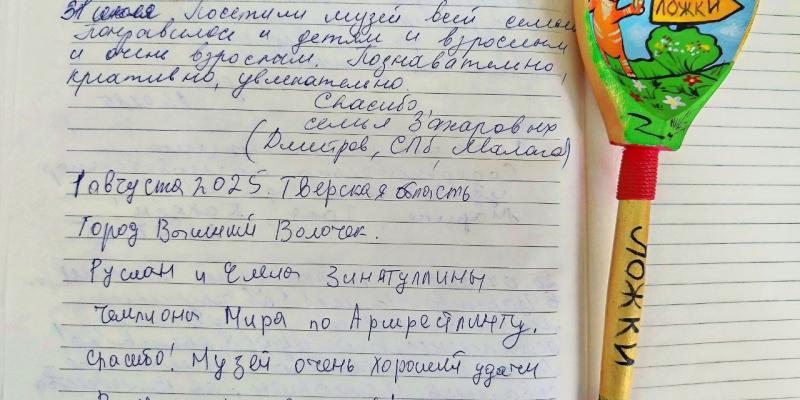 31 июля Посетили музей всей семьей
Понравилось и детям и взрослым
и очень взрослым. Познавательно,
креативно, увлекательно.
Спасибо,
семья Захаровых
(Дмитров, СПб, Малага)
1 августа 2025. Тверская область
Город Вышний Волочек.
Руслан и Елена Зинатуллины
Чемпионы Мира по Армрестлингу.
Спасибо! Музей очень хороший удачи
ЛОЖКИ
ЛОЖКИ